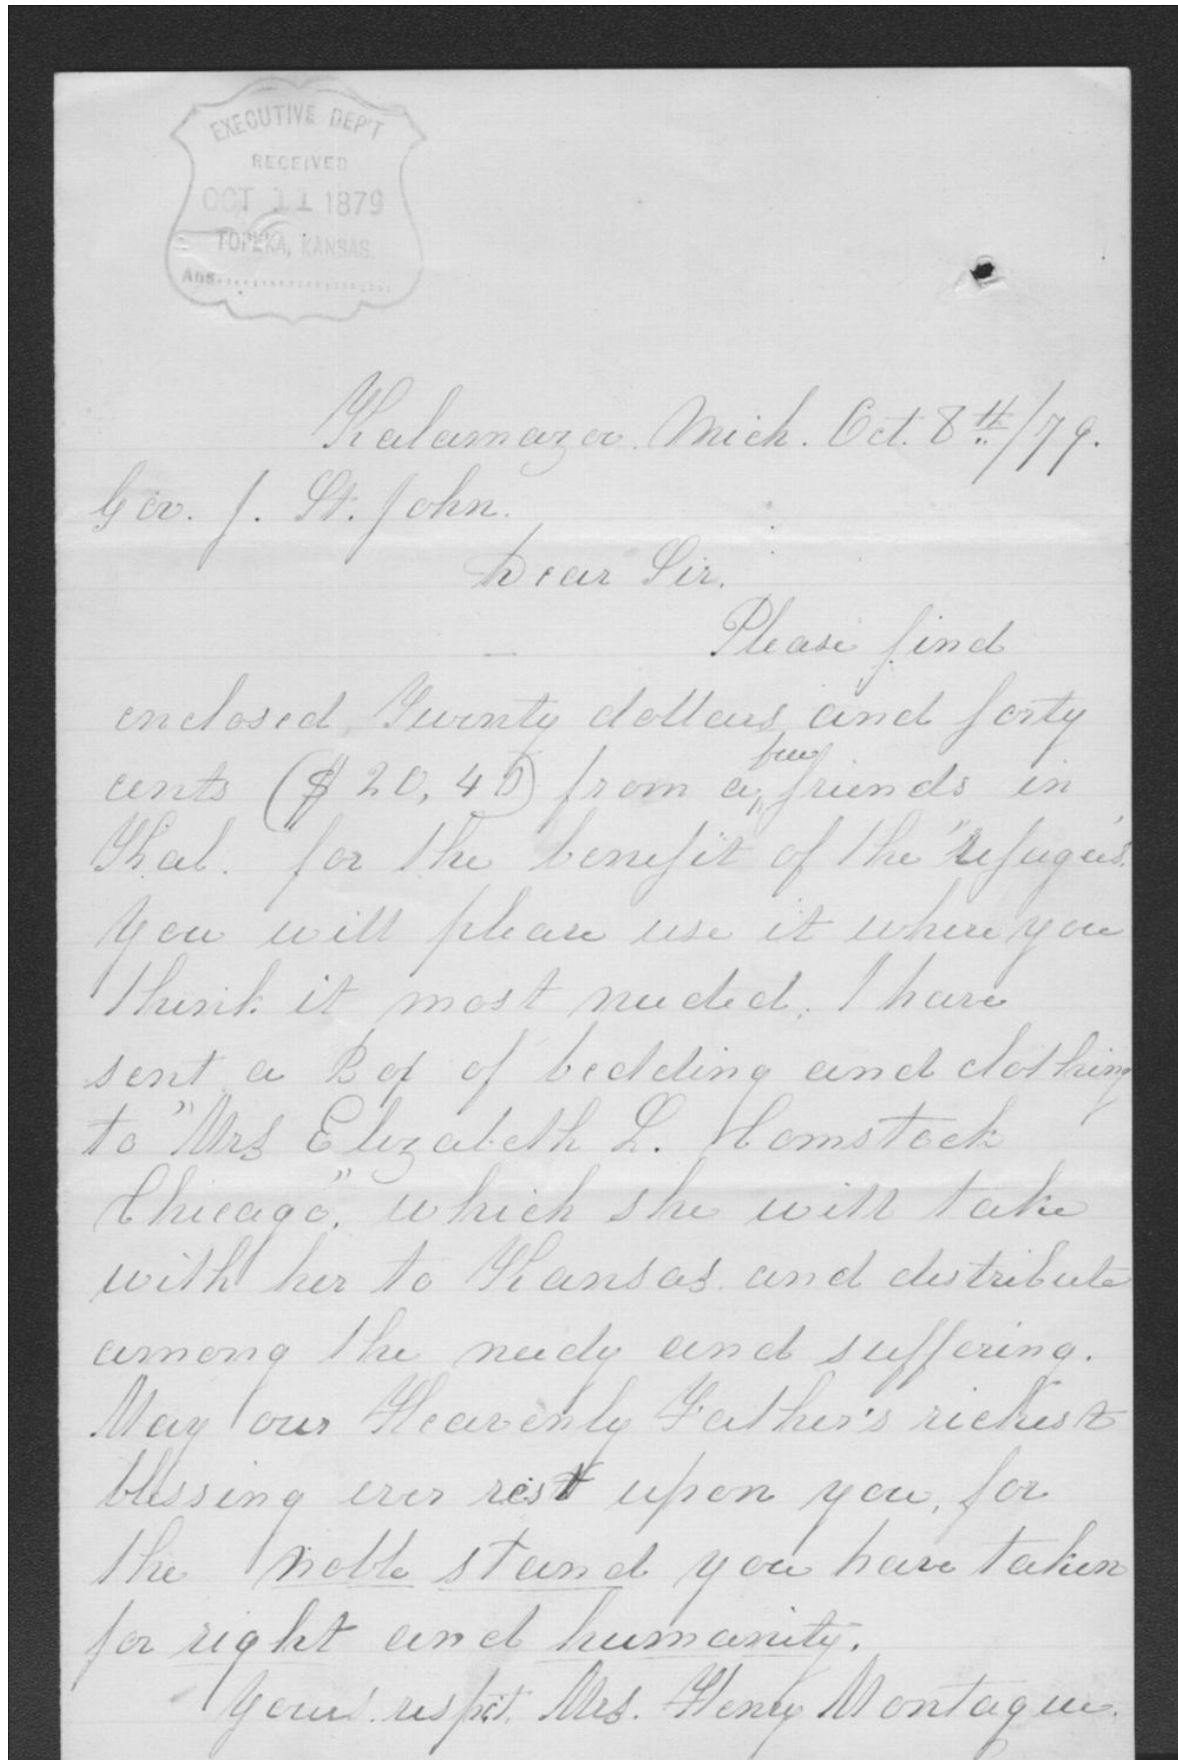 EXECUTIVE DEP'T
RECEIVED
OCT 11 1879
TOPEKA, KANSAS.
Ans
Kalamazoo. Mich. Oct. 8th/79.
Gov. J. St. John.
Dear Sir.
Please find
enclosed, Twenty dollars and forty
cents ($20,40) from a few friends in
Kal. for the benefit of the "refugees".
You will please use it where you
think it most needed. I have
sent a Box of bedding and clothing
to "Mrs Elizabeth L. Comstock
Chicago", which she will take
with her to Kansas. and distribute
among the needy and suffering.
May our Heavenly Father's richest
blessing ever rest upon you, for
the noble stand you have taken
for right and humanity.
Yours. respct. Mrs. Henry Montague.